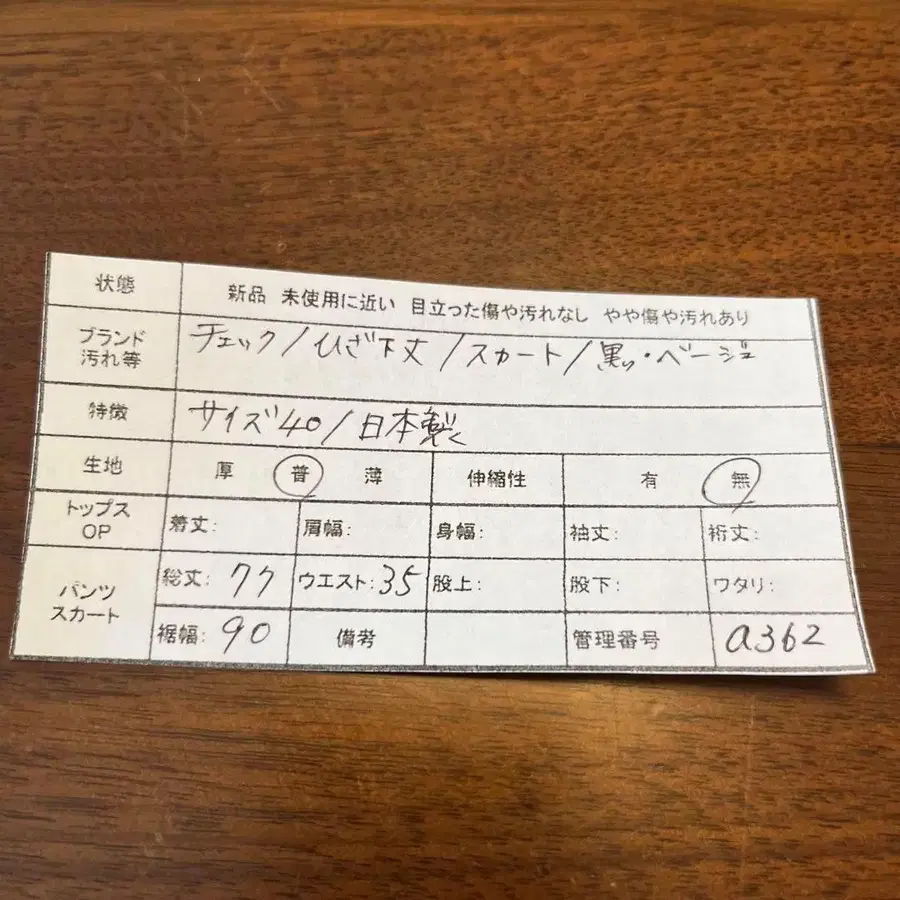 状態 新品 未使用に近い 目立った傷や汚れなし やや傷や汚れあり
ブランド 汚れ等 チェック/ひざ下丈/スカート/黒・ベージュ
特徴 サイズ40/日本製
生地 厚 普 薄 伸縮性 有 無
トップス OP 着丈: 肩幅: 身幅: 袖丈: 裄丈:
パンツ スカート 総丈: 77 ウエスト: 35 股上: 股下: ワタリ:
裾幅: 90 備考 管理番号 a362